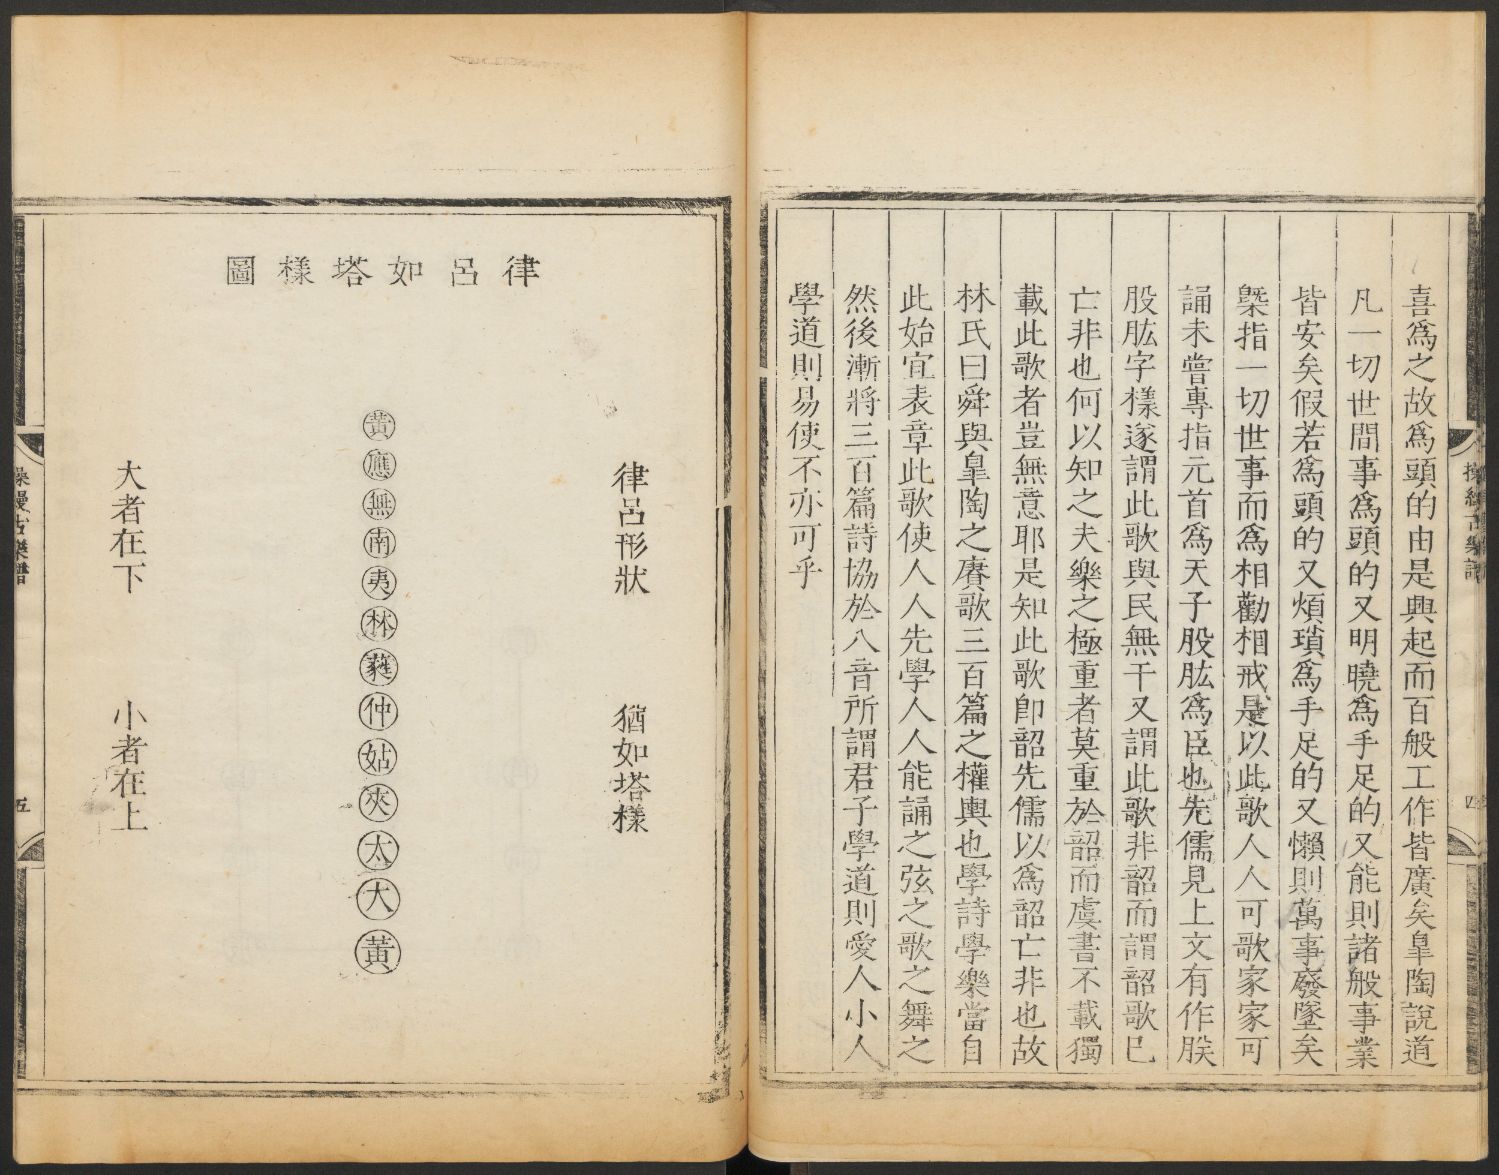 喜爲之故爲頭的由是興起而百般工作皆廣矣臯陶說道
凡一切世間事爲頭的又明曉爲手足的又能則諸般事業
皆安矣假若爲頭的又煩瑣爲手足的又懶則萬事廢墜矣
槩指一切世事而爲相勸相戒是以此歌人人可歌家家可
誦未嘗專指元首爲天子股肱爲臣也先儒見上文有作朕
股肱字樣遂謂此歌與民無干又謂此歌非韶而謂韶歌已
亡非也何以知之夫樂之極重者莫重於韶而虞書不載獨
載此歌者豈無意耶是知此歌卽韶先儒以爲韶亡非也故
林氏曰舜與臯陶之賡歌三百篇之權輿也學詩學樂當自
此始宜表章此歌使人人先學人人能誦之弦之歌之舞之
然後漸將三百篇詩協於八音所謂君子學道則愛人小人
學道則易使不亦可乎
四
律呂如塔樣圖
律呂形狀 猶如塔樣
黃
應
無
南
夷
林
蕤
仲
姑
夾
太
大
黃
大者在下 小者在上
操縵古樂譜
五